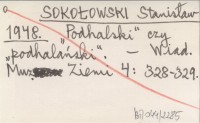 SOKOŁOWSKI Stanisław
1948. "Podhalski" czy
"podhalański". – Wiad.
Muz. Ziemi 4: 328-329.